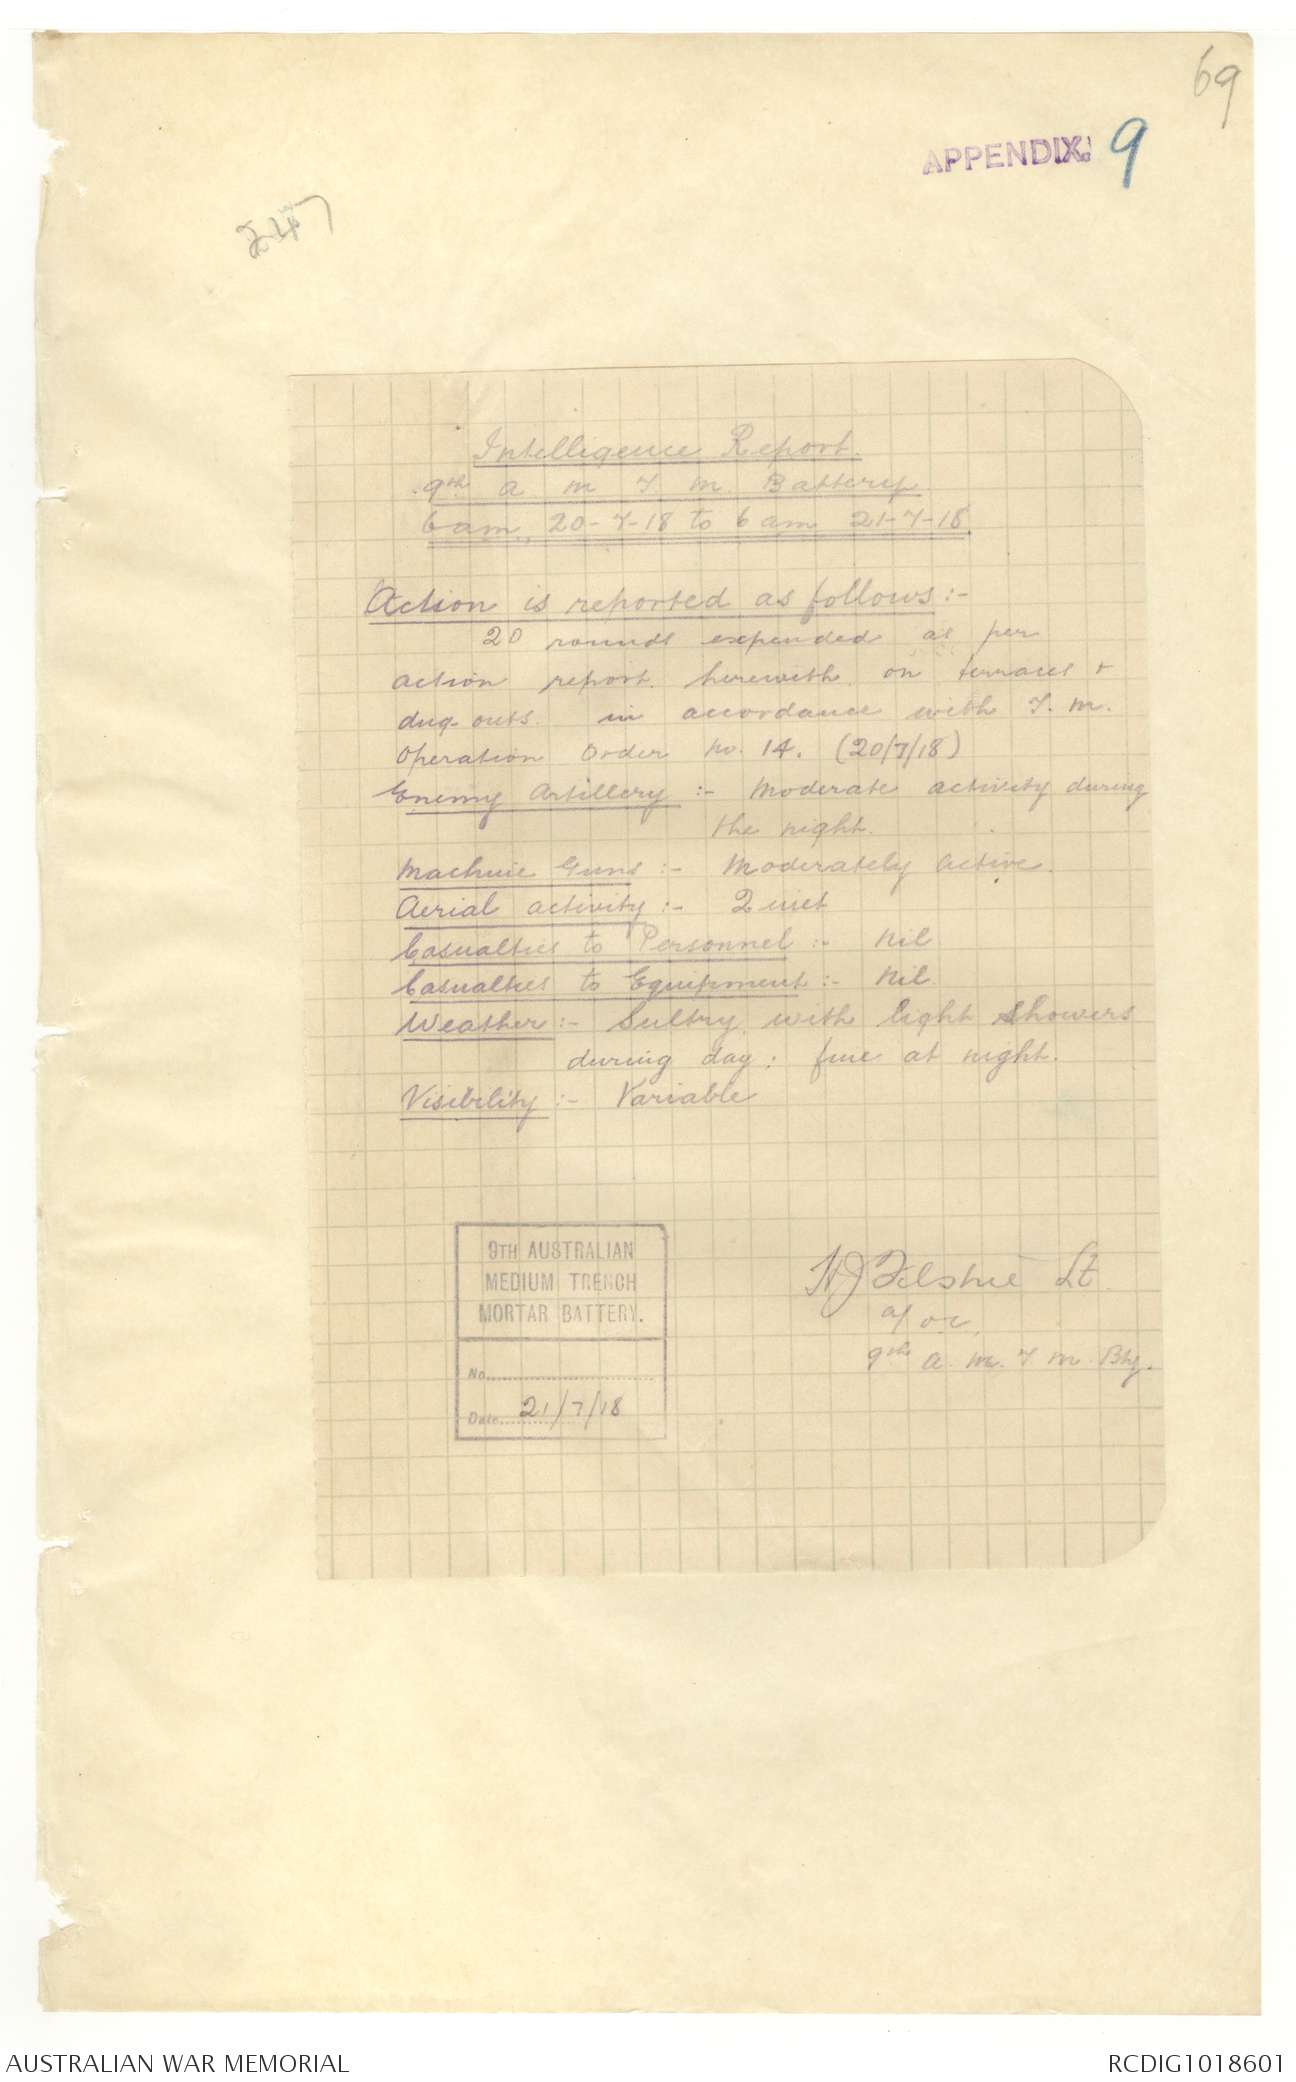 69
APPENDIX. 9
247
Intelligence Report.
9th A M T. M. Battery
6 am, 20-7-18 to 6 am 21-7-18.
Action is reported as follows :-
20 rounds expended as per
action report herewith on terraces +
dug-outs in accordance with T. M.
Operation Order No. 14. (20/7/18)
Enemy Artillery :- Moderate activity during
the night.
Machine Guns :- Moderately active.
Aerial activity :- Quiet
Casualties to Personnel :- Nil
Casualties to Equipment :- Nil.
Weather :- Sultry with light showers
during day; fine at night.
Visibility :- Variable
9TH AUSTRALIAN
MEDIUM TRENCH
MORTAR BATTERY.
No.
Date 21/7/18
Lt.
a/ O.C.
9th A. M. T M Bty.
AUSTRALIAN WAR MEMORIAL
RCDIG1018601